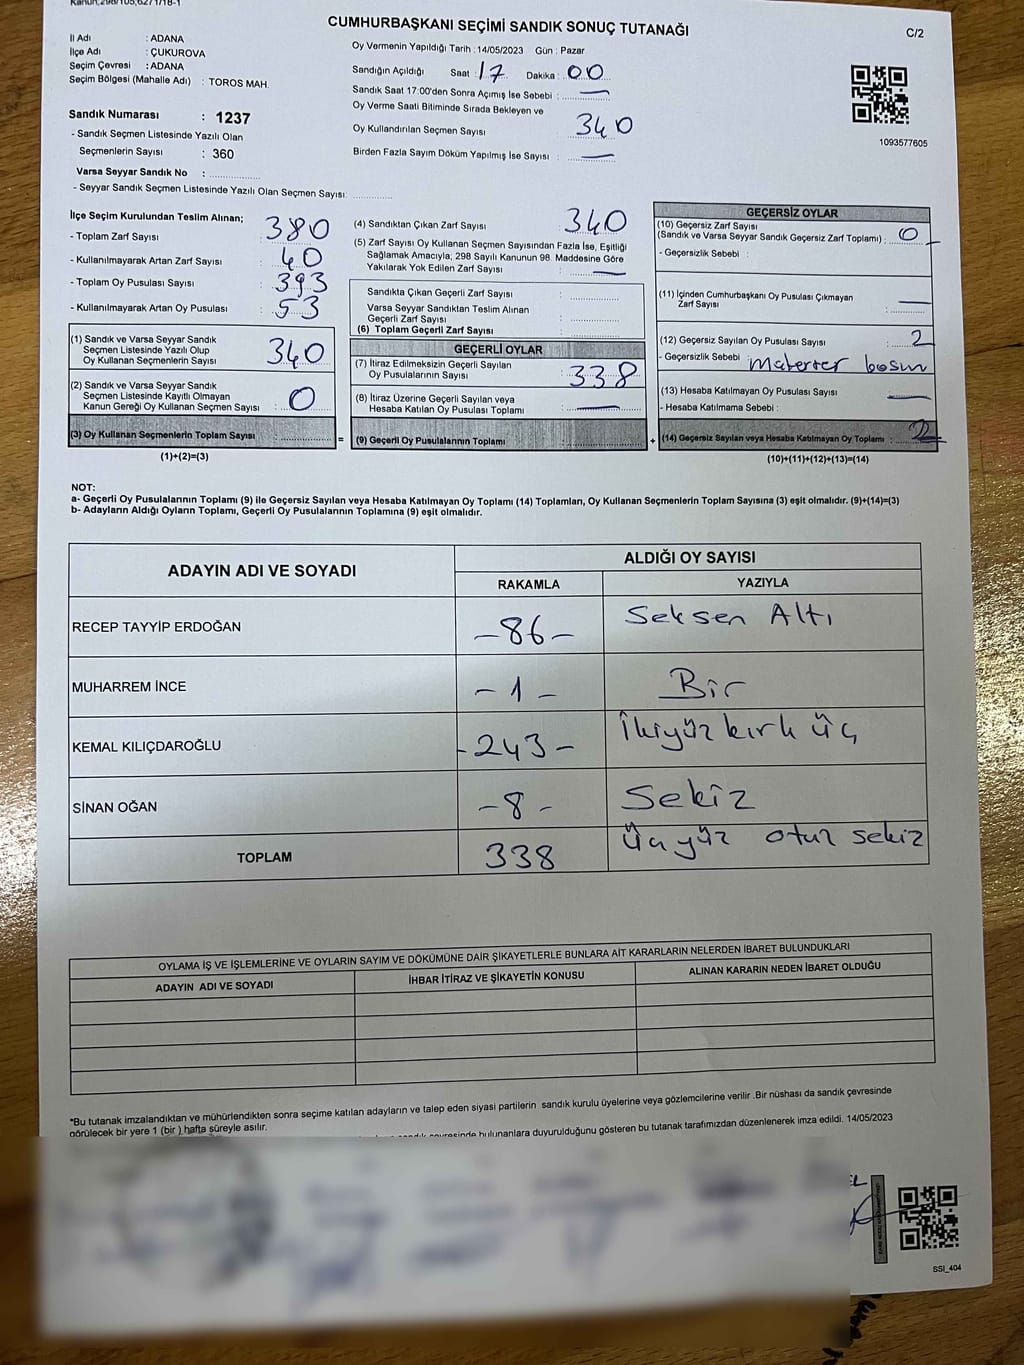 Kanun,298/105,627/1/18-1
CUMHURBAŞKANI SEÇİMİ SANDIK SONUÇ TUTANAĞI
C/2
İl Adı : ADANA
İlçe Adı : ÇUKUROVA
Seçim Çevresi : ADANA
Seçim Bölgesi (Mahalle Adı) : TOROS MAH.
Sandık Numarası : 1237
- Sandık Seçmen Listesinde Yazılı Olan
Seçmenlerin Sayısı : 360
Varsa Seyyar Sandık No :
- Seyyar Sandık Seçmen Listesinde Yazılı Olan Seçmen Sayısı:
Oy Vermenin Yapıldığı Tarih : 14/05/2023 Gün : Pazar
Sandığın Açıldığı Saat : 17 Dakika : 00
Sandık Saat 17:00'den Sonra Açımış İse Sebebi : —
Oy Verme Saati Bitiminde Sırada Bekleyen ve
Oy Kullandırılan Seçmen Sayısı : 340
Birden Fazla Sayım Döküm Yapılmış İse Sayısı : —
1093577605
İlçe Seçim Kurulundan Teslim Alınan;
- Toplam Zarf Sayısı : 380
- Kullanılmayarak Artan Zarf Sayısı : 40
- Toplam Oy Pusulası Sayısı : 393
- Kullanılmayarak Artan Oy Pusulası : 53
(1) Sandık ve Varsa Seyyar Sandık
Seçmen Listesinde Yazılı Olup
Oy Kullanan Seçmenlerin Sayısı : 340
(2) Sandık ve Varsa Seyyar Sandık
Seçmen Listesinde Kayıtlı Olmayan
Kanun Gereği Oy Kullanan Seçmen Sayısı : 0
(3) Oy Kullanan Seçmenlerin Toplam Sayısı :
(1)+(2)=(3)
=
(4) Sandıktan Çıkan Zarf Sayısı : 340
(5) Zarf Sayısı Oy Kullanan Seçmen Sayısından Fazla İse, Eşitliği
Sağlamak Amacıyla; 298 Sayılı Kanunun 98. Maddesine Göre
Yakılarak Yok Edilen Zarf Sayısı : —
Sandıkta Çıkan Geçerli Zarf Sayısı :
Varsa Seyyar Sandıktan Teslim Alınan
Geçerli Zarf Sayısı :
(6) Toplam Geçerli Zarf Sayısı :
GEÇERLİ OYLAR
(7) İtiraz Edilmeksizin Geçerli Sayılan
Oy Pusulalarının Sayısı : 338
(8) İtiraz Üzerine Geçerli Sayılan veya
Hesaba Katılan Oy Pusulası Toplamı : —
(9) Geçerli Oy Pusulalarının Toplamı :
+
GEÇERSİZ OYLAR
(10) Geçersiz Zarf Sayısı
(Sandık ve Varsa Seyyar Sandık Geçersiz Zarf Toplamı) : 0
- Geçersizlik Sebebi :
(11) İçinden Cumhurbaşkanı Oy Pusulası Çıkmayan
Zarf Sayısı : —
(12) Geçersiz Sayılan Oy Pusulası Sayısı : 2
- Geçersizlik Sebebi :
(13) Hesaba Katılmayan Oy Pusulası Sayısı : —
- Hesaba Katılmama Sebebi :
(14) Geçersiz Sayılan veya Hesaba Katılmayan Oy Toplamı : 2
(10)+(11)+(12)+(13)=(14)
NOT:
a- Geçerli Oy Pusulalarının Toplamı (9) ile Geçersiz Sayılan veya Hesaba Katılmayan Oy Toplamı (14) Toplamları, Oy Kullanan Seçmenlerin Toplam Sayısına (3) eşit olmalıdır. (9)+(14)=(3)
b- Adayların Aldığı Oyların Toplamı, Geçerli Oy Pusulalarının Toplamına (9) eşit olmalıdır.
ADAYIN ADI VE SOYADI ALDIĞI OY SAYISI
RAKAMLA YAZIYLA
RECEP TAYYİP ERDOĞAN -86- Seksen Altı
MUHARREM İNCE -1- Bir
KEMAL KILIÇDAROĞLU -243- İkiyüz kırk üç
SİNAN OĞAN -8- Sekiz
TOPLAM 338 Üçyüz otuz sekiz
OYLAMA İŞ VE İŞLEMLERİNE VE OYLARIN SAYIM VE DÖKÜMÜNE DAİR ŞİKAYETLERLE BUNLARA AİT KARARLARIN NELERDEN İBARET BULUNDUKLARI
ADAYIN ADI VE SOYADI İHBAR İTİRAZ VE ŞİKAYETİN KONUSU ALINAN KARARIN NEDEN İBARET OLDUĞU
*Bu tutanak imzalandıktan ve mühürlendikten sonra seçime katılan adayların ve talep eden siyasi partilerin sandık kurulu üyelerine veya gözlemcilerine verilir .Bir nüshası da sandık çevresinde
görülecek bir yere 1 (bir ) hafta süreyle asılır.
bulunanlara duyurulduğunu gösteren bu tutanak tarafımızdan düzenlenerek imza edildi. 14/05/2023
SSI_404